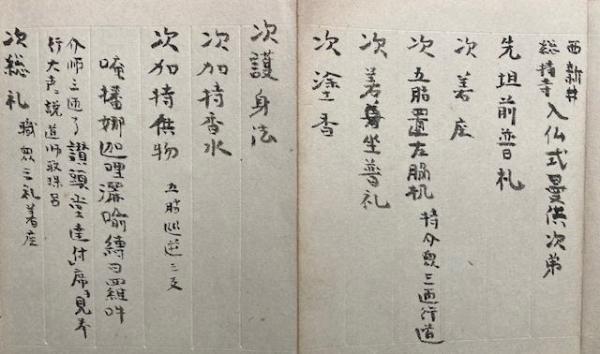 西新井
総持寺 入仏式曼供次第
先坦前普礼
次 着座
次 五股置左脇机 持分衆三匝行道
次 着坐普礼
次 塗香
次 護身法
次 加持香水
次 加持供物 五股順逆三反
唵播娜迦哩灑喻縛日羅吽
分師三匝了讃頭堂達付席見斗
行大声説道師取珠呂
次 総礼 職衆三礼着座